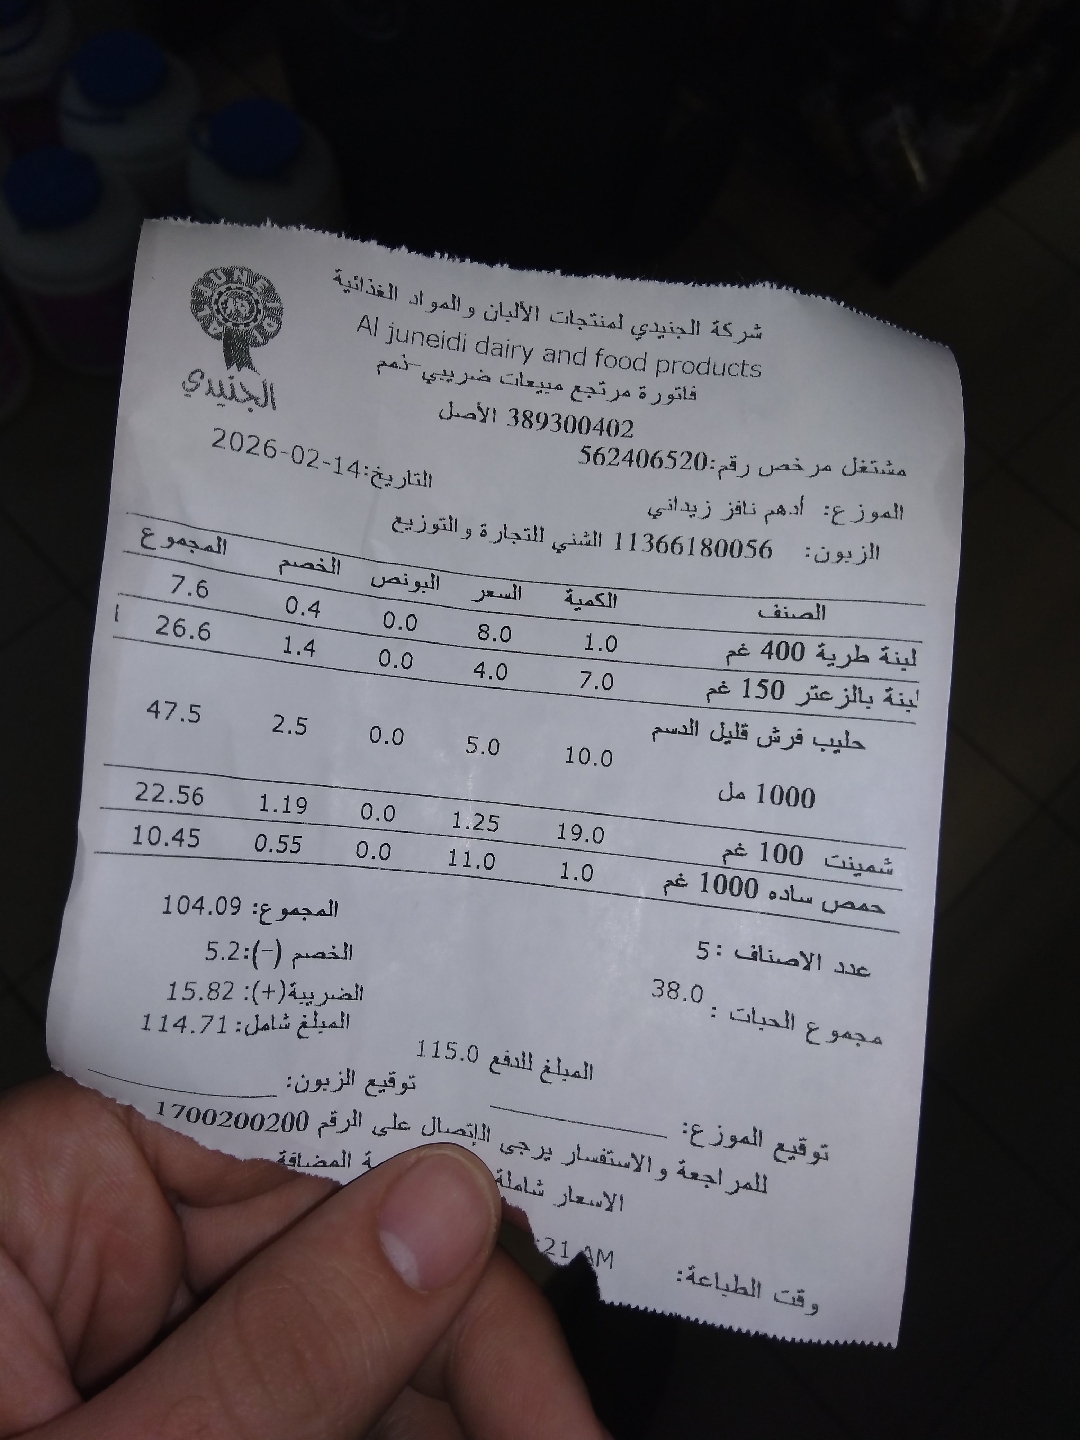 JUNEIDI
الجنيدي
شركة الجنيدي لمنتجات الألبان والمواد الغذائية
Al juneidi dairy and food products
فاتورة مرتجع مبيعات ضريبي-ذمم
389300402 الأصل
مشتغل مرخص رقم:562406520
التاريخ:2026-02-14
الموزع: أدهم نافز زيداني
الزبون: 11366180056 الشني للتجارة والتوزيع
الصنف الكمية السعر البونص الخصم المجموع
لبنة طرية 400 غم 1.0 8.0 0.0 0.4 7.6
لبنة بالزعتر 150 غم 7.0 4.0 0.0 1.4 26.6
حليب فرش قليل الدسم 10.0 5.0 0.0 2.5 47.5
1000 مل
شمينت 100 غم 19.0 1.25 0.0 1.19 22.56
حمص ساده 1000 غم 1.0 11.0 0.0 0.55 10.45
المجموع: 104.09
عدد الاصناف :5 الخصم (-):5.2
مجموع الحبات : 38.0 الضريبة(+): 15.82
المبلغ شامل: 114.71
المبلغ للدفع 115.0
توقيع الموزع: توقيع الزبون:
للمراجعة والاستفسار يرجى الإتصال على الرقم 1700200200
الاسعار شاملة المضافة
وقت الطباعة: :21 AM